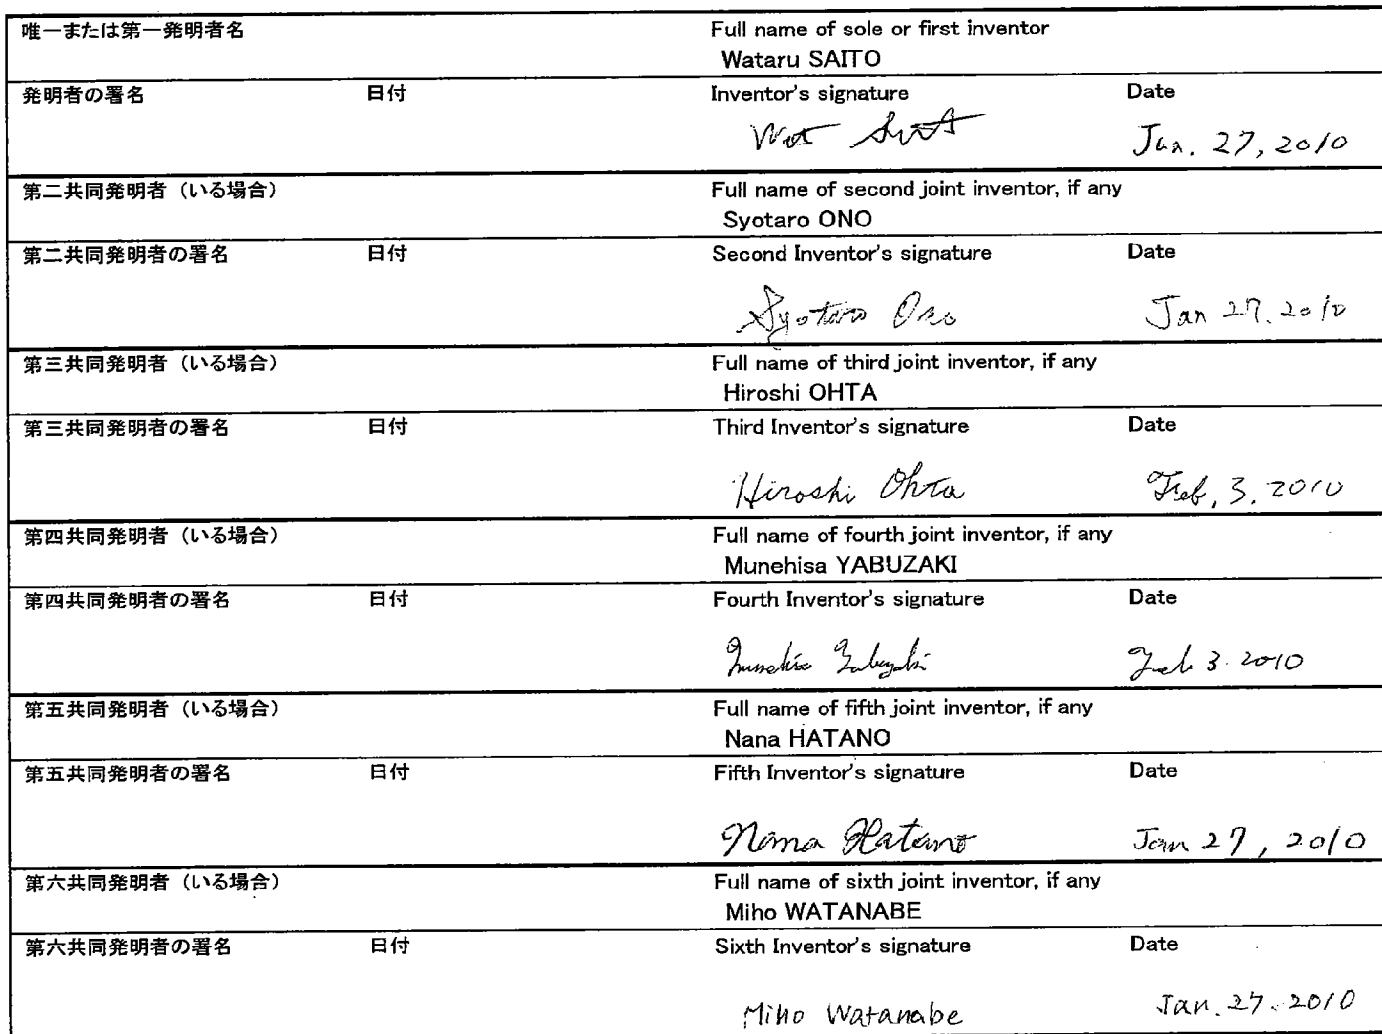 唯一または第一発明者名 Full name of sole or first inventor
Wataru SAITO
発明者の署名 日付 Inventor's signature Date
Jan. 27, 2010
第二共同発明者（いる場合） Full name of second joint inventor, if any
Syotaro ONO
第二共同発明者の署名 日付 Second Inventor's signature Date
Syotaro Ono Jan 27. 2010
第三共同発明者（いる場合） Full name of third joint inventor, if any
Hiroshi OHTA
第三共同発明者の署名 日付 Third Inventor's signature Date
Hiroshi Ohta Feb, 3, 2010
第四共同発明者（いる場合） Full name of fourth joint inventor, if any
Munehisa YABUZAKI
第四共同発明者の署名 日付 Fourth Inventor's signature Date
Munehisa Yabuzaki Feb 3. 2010
第五共同発明者（いる場合） Full name of fifth joint inventor, if any
Nana HATANO
第五共同発明者の署名 日付 Fifth Inventor's signature Date
Nana Hatano Jan 27, 2010
第六共同発明者（いる場合） Full name of sixth joint inventor, if any
Miho WATANABE
第六共同発明者の署名 日付 Sixth Inventor's signature Date
Miho Watanabe Jan. 27. 2010